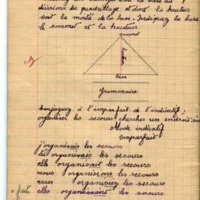 divisions de quadrillage et dont la hauteur
est la moitié de la base. Indiquez la base
le sommet et la hauteur
sommet
hauteur
base
Grammaire
Conjuguez à l'imparfait de l'indicatif :
organiser les secours, chercher un endroit
Mode indicatif
imparfait
j'organisais les secours
tu organisais les secours
elle organisait les secours
nous organisions les secours
vous organisiez les secours
elles organisaient les secours